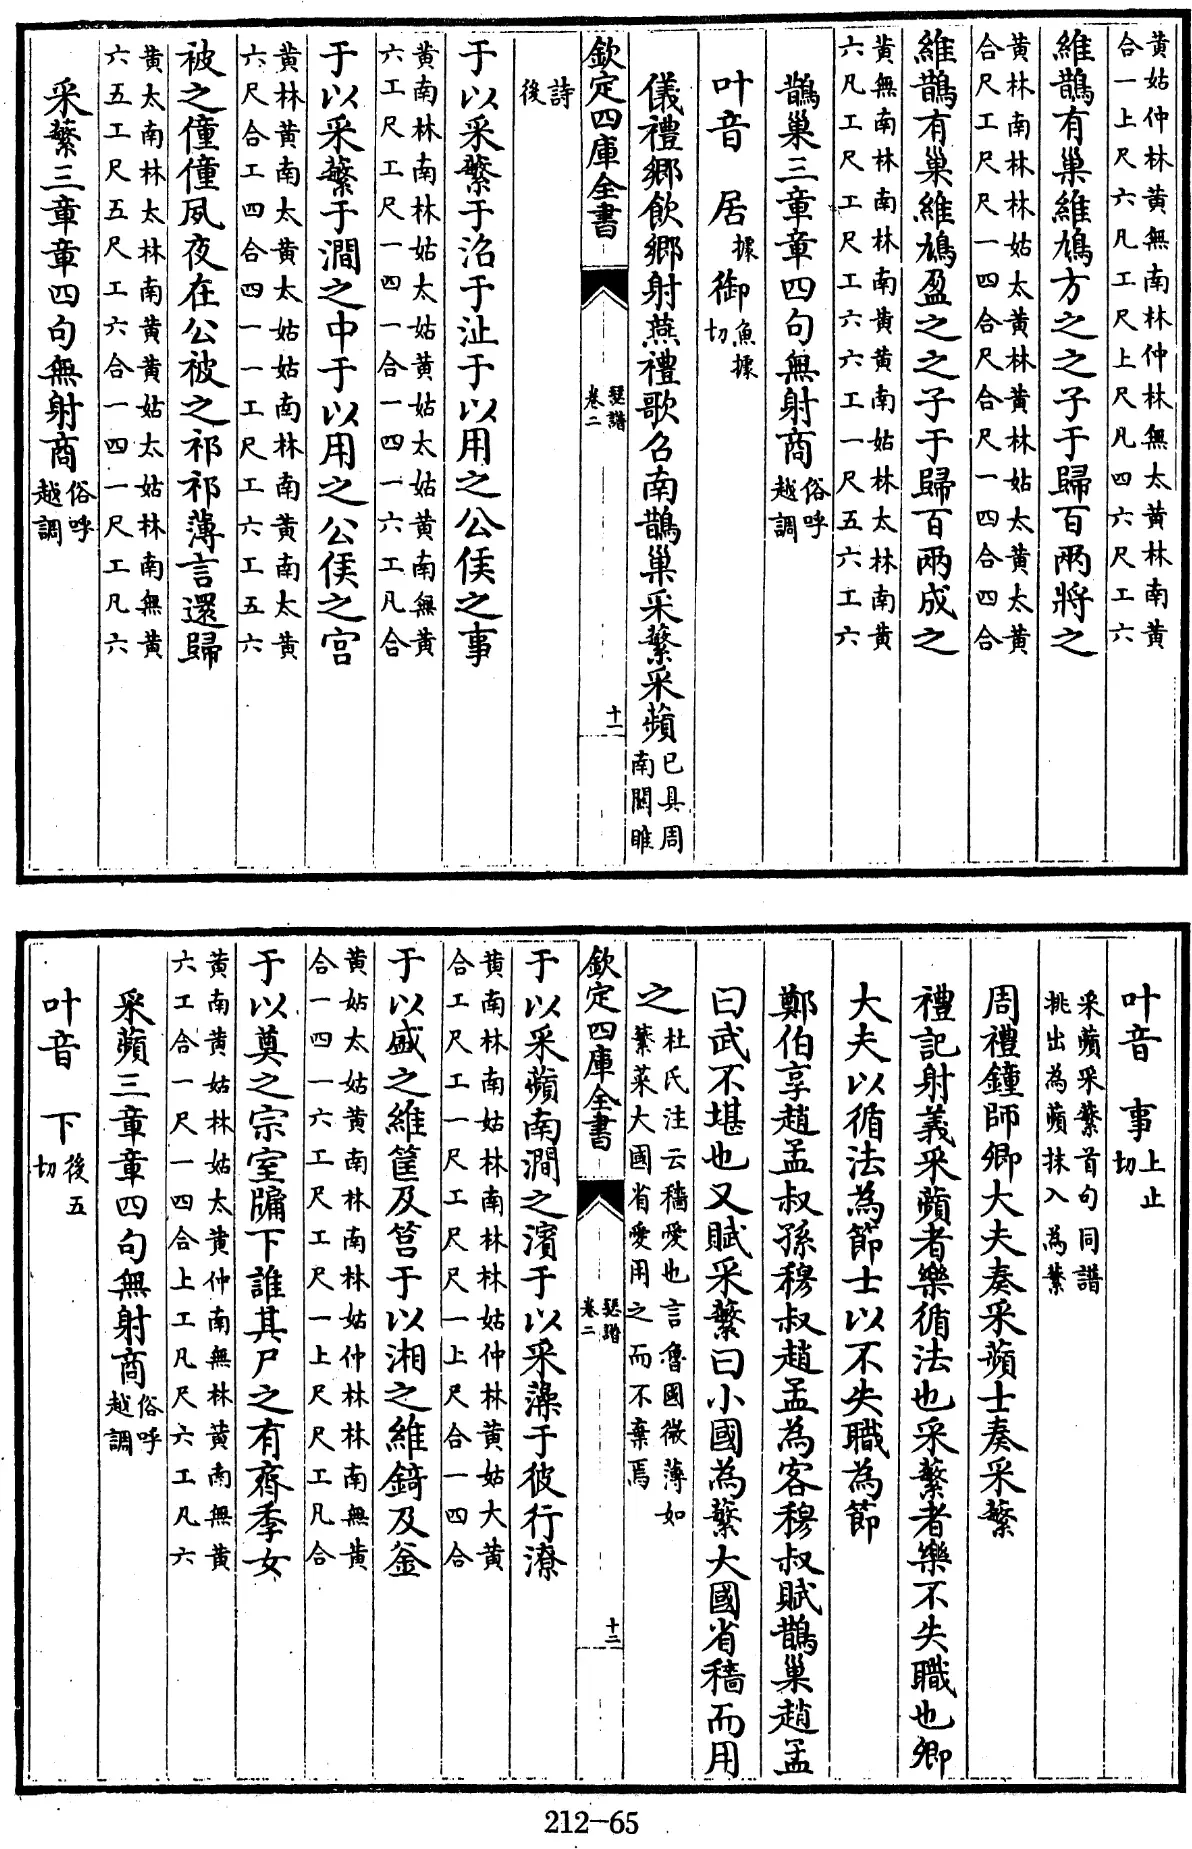 黃姑仲林黃無南林仲林無太黃林南黃
合一上尺六凡工尺上尺凡四六尺工六
維鵲有巢維鳩方之之子于歸百兩將之
黃林南林林姑太黃林黃林姑太黃太黃
合尺工尺尺一四合尺合尺一四合四合
維鵲有巢維鳩盈之之子于歸百兩成之
黃無南林南林南黃黃南姑林太林南黃
六凡工尺工尺工六六工一尺五六工六
鵲巢三章章四句無射商俗呼越調
叶音 居據 御魚據切
儀禮鄉飲鄉射燕禮歌召南鵲巢采蘩采蘋已具周南關睢
欽定四庫全書 瑟譜卷二 十一
詩後
于以采蘩于沼于沚于以用之公侯之事
黃南林南林姑太姑黃姑太姑黃南無黃
六工尺工尺一四一合一四一六工凡合
于以采蘩于澗之中于以用之公侯之宮
黃林黃南太黃太姑姑南林南黃南太黃
六尺合工四合四一一工尺工六工五六
被之僮僮夙夜在公被之祁祁薄言還歸
黃太南林太林南黃黃姑太姑林南無黃
六五工尺五尺工六合一四一尺工凡六
采蘩三章章四句無射商俗呼越調
叶音 事上止切
采蘋采蘩首句同譜
挑出為蘋抹入為蘩
周禮鐘師卿大夫奏采蘋士奏采蘩
禮記射義采蘋者樂循法也采蘩者樂不失職也卿
大夫以循法為節士以不失職為節
鄭伯享趙孟叔孫穆叔趙孟為客穆叔賦鵲巢趙孟
曰武不堪也又賦采蘩曰小國為蘩大國省穡而用
之杜氏注云穡愛也言魯國微薄如蘩菜大國省愛用之而不棄焉
欽定四庫全書 瑟譜卷二 十二
于以采蘋南澗之濱于以采藻于彼行潦
黃南林南姑林南林林姑仲林黃姑大黃
合工尺工一尺工尺尺一上尺合一四合
于以盛之維筐及筥于以湘之維錡及釜
黃姑太姑黃南林南林姑仲林林南無黃
合一四一六工尺工尺一上尺尺工凡合
于以奠之宗室牖下誰其尸之有齊季女
黃南黃姑林姑太黃仲南無林黃南無黃
六工合一尺一四合上工凡尺六工凡六
采蘋三章章四句無射商俗呼越調
叶音 下後五切
212-65